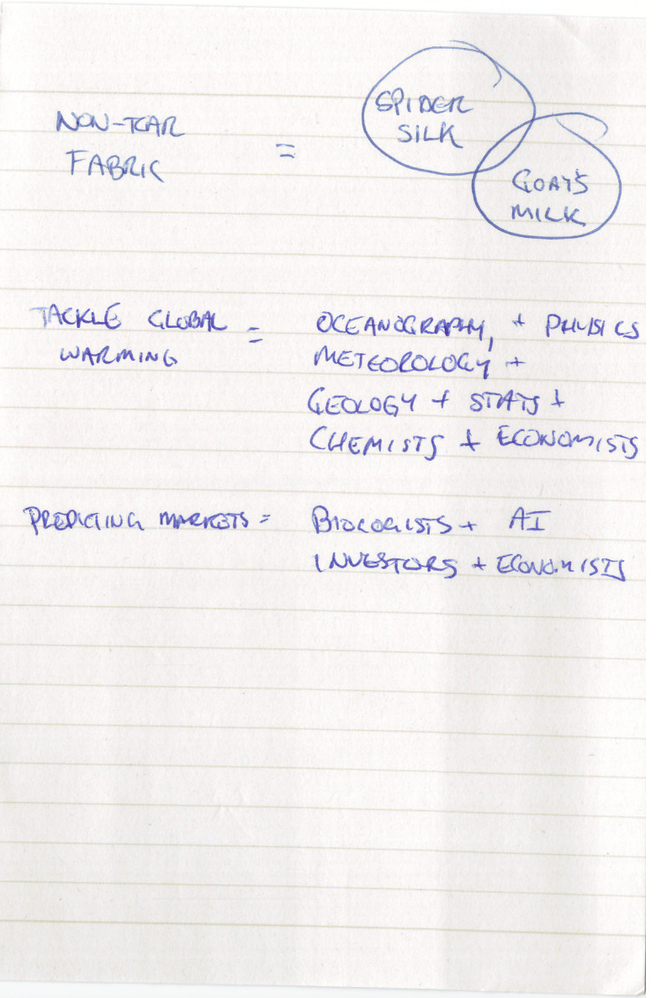 NON-TEAR
FABRIC
=
SPIDER
SILK
GOAT'S
MILK
TACKLE GLOBAL = OCEANOGRAPHY, + PHYSICS
WARMING METEOROLOGY +
GEOLOGY + STATS +
CHEMISTS + ECONOMISTS
PREDICTING MARKETS = BIOLOGISTS + AI
INVESTORS + ECONOMISTS